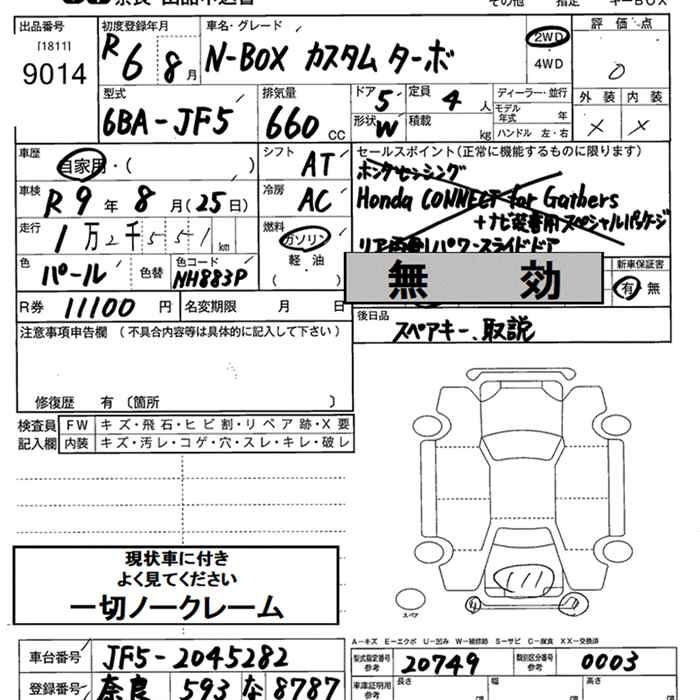 出品番号 初度登録年月 車名・グレード 評価点
[1811] R6 8月 N-BOX カスタム ターボ 2WD
9014 4WD 0
型式 排気量 ドア 5 定員 4人 ディーラー・並行 外装 内装
6BA-JF5 660 CC 形状 W 積載 kg モデル年式 年 × ×
ハンドル 左・右
車歴 自家用・( ) シフト AT セールスポイント(正常に機能するものに限ります)
ホンダセンシング
車検 R9年 8月(25日) 冷房 AC Honda CONNECT for Gathers
+ナビ装着用スペシャルパッケージ
走行 1万2千551km 燃料 ガソリン 軽・油 ( ) リア両側パワースライドドア
色 パール 色替 色コード NH883P 無効 新車保証書
有 無
R券 11100円 名変期限 月 日 後日品
スペアキー、取説
注意事項申告欄 (不具合内容等は具体的に記入して下さい)
修復歴 有 〔箇所 〕
検査員 FW キズ・飛石・ヒビ割・リペア跡・X要
記入欄 内装 キズ・汚レ・コゲ・穴・スレ・キレ・破レ
現状車に付き
よく見てください
一切ノークレーム
スペア
A-キズ E-エクボ U-凹み W-補修跡 S-サビ C-腐食 XX-交換済
車台番号 JF5-2045282 型式指定番号 参考 20749 類別区分番号 参考 0003
登録番号 奈良 593 な 8787 車庫証明用 参考 長さ 幅 高さ